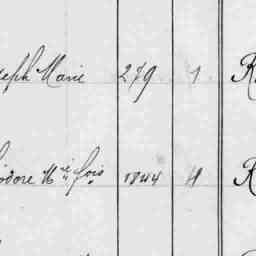 seph Marie 279 1 R
odore M^rie frois 1844 4 R